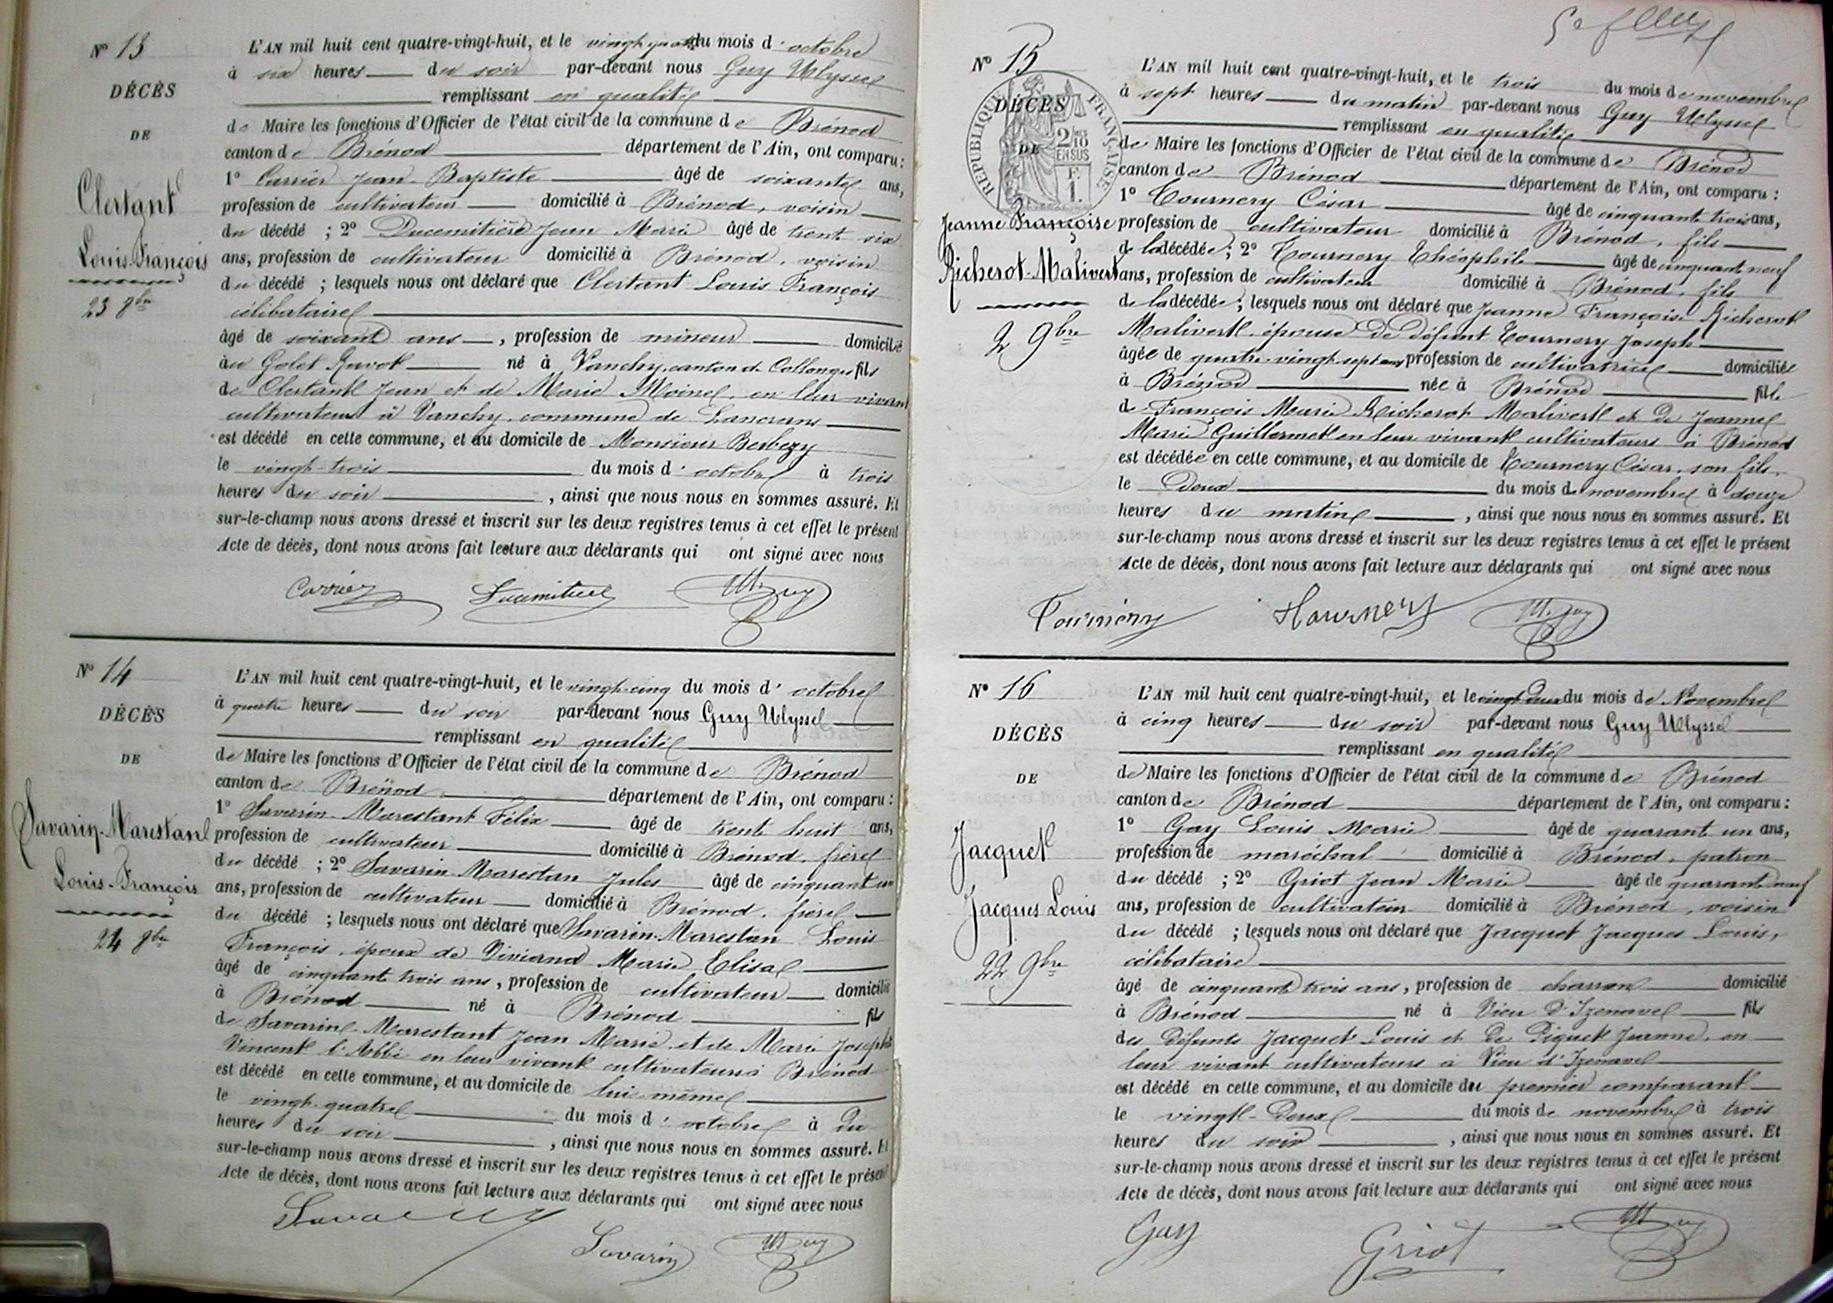 N° 13
DÉCÈS
DE
Clertant
Louis-François
23 8bre
L'AN mil huit cent quatre-vingt-huit, et le vingt-quatre du mois d'octobre
à six heures du soir par-devant nous Guy Ulysse
remplissant en qualité
de Maire les fonctions d'Officier de l'état civil de la commune de Brénod
canton de Brénod département de l'Ain, ont comparu :
1° Currier Jean-Baptiste âgé de soixante ans,
profession de cultivateur domicilié à Brénod, voisin
du décédé ; 2° Ducemitière Jean Marie âgé de trente six
ans, profession de cultivateur domicilié à Brénod, voisin
du décédé ; lesquels nous ont déclaré que Clertant Louis François
célibataire
âgé de soixante ans, profession de mineur domicilié
au Golet Ravot né à Vanchy, canton de Collonges fils
de Clertant Jean et de Marie Moine, en leur vivant
cultivateurs à Vanchy, commune de Lancrans
est décédé en cette commune, et au domicile de Monsieur
le vingt-trois du mois d'octobre à trois
heures du soir, ainsi que nous nous en sommes assuré. Et
sur-le-champ nous avons dressé et inscrit sur les deux registres tenus à cet effet le présent
Acte de décès, dont nous avons fait lecture aux déclarants qui ont signé avec nous
N° 14
DÉCÈS
DE
Savarin-Marestant
Louis-François
24 8bre
L'AN mil huit cent quatre-vingt-huit, et le vingt-cinq du mois d'octobre
à quatre heures du soir par-devant nous Guy Ulysse
remplissant en qualité
de Maire les fonctions d'Officier de l'état civil de la commune de Brénod
canton de Brénod département de l'Ain, ont comparu :
1° Savarin-Marestant Félix âgé de trente huit ans,
profession de cultivateur domicilié à Brénod, frère
du décédé ; 2° Savarin Marestan Jules âgé de cinquante un
ans, profession de cultivateur domicilié à Brénod, frère
du décédé ; lesquels nous ont déclaré que Savarin-Marestan Louis
François, époux de Viviand Marie Elisa
âgé de cinquante trois ans, profession de cultivateur domicilié
à Brénod né à Brénod fils
de Savarin-Marestant Jean Marie et de Marie Josephte
Vincent l'Abbé en leur vivant cultivateurs à Brénod
est décédé en cette commune, et au domicile de lui même
le vingt-quatre du mois d'octobre à dix
heures du soir, ainsi que nous nous en sommes assuré. Et
sur-le-champ nous avons dressé et inscrit sur les deux registres tenus à cet effet le présent
Acte de décès, dont nous avons fait lecture aux déclarants qui ont signé avec nous
Savarin
N° 15
DÉCÈS
DE
RÉPUBLIQUE FRANÇAISE
2/10 EN SUS
F. 1.
Jeanne Françoise
Richerot-Malivert
2 9bre
L'AN mil huit cent quatre-vingt-huit, et le trois du mois de novembre
à sept heures du matin par-devant nous Guy Ulysse
remplissant en qualité
de Maire les fonctions d'Officier de l'état civil de la commune de Brénod
canton de Brénod département de l'Ain, ont comparu :
1° Tournery César âgé de cinquante trois ans,
profession de cultivateur domicilié à Brénod, fils
de la décédée ; 2° Tournery Théophile âgé de cinquante neuf
ans, profession de cultivateur domicilié à Brénod, fils
de la décédée ; lesquels nous ont déclaré que Jeanne Françoise Richerot
Malivert, épouse de défunt Tournery Joseph
âgée de quatre-vingt-sept ans, profession de cultivatrice domiciliée
à Brénod née à Brénod fille
de François Marie Richerot Malivert et de Jeanne
Marie Guillermet en leur vivant cultivateurs à Brénod
est décédée en cette commune, et au domicile de Tournery César, son fils,
le deux du mois de novembre à douze
heures du matin, ainsi que nous nous en sommes assuré. Et
sur-le-champ nous avons dressé et inscrit sur les deux registres tenus à cet effet le présent
Acte de décès, dont nous avons fait lecture aux déclarants qui ont signé avec nous
N° 16
DÉCÈS
DE
Jacquet
Jacques Louis
22 9bre
L'AN mil huit cent quatre-vingt-huit, et le vingt deux du mois de Novembre
à cinq heures du soir par-devant nous Guy Ulysse
remplissant en qualité
de Maire les fonctions d'Officier de l'état civil de la commune de Brénod
canton de Brénod département de l'Ain, ont comparu :
1° Gay Louis Marie âgé de quarante un ans,
profession de maréchal domicilié à Brénod, patron
du décédé ; 2° Griot Jean Marie âgé de quarante neuf
ans, profession de cultivateur domicilié à Brénod, voisin
du décédé ; lesquels nous ont déclaré que Jacquet Jacques Louis,
célibataire
âgé de cinquante trois ans, profession de charron domicilié
à Brénod né à Vieu d'Izenave fils
des défunts Jacquet Louis et de Piquet Jeanne, en
leur vivant cultivateurs à Vieu d'Izenave
est décédé en cette commune, et au domicile du premier comparant
le vingt-deux du mois de novembre à trois
heures du soir, ainsi que nous nous en sommes assuré. Et
sur-le-champ nous avons dressé et inscrit sur les deux registres tenus à cet effet le présent
Acte de décès, dont nous avons fait lecture aux déclarants qui ont signé avec nous
Gay
Griot